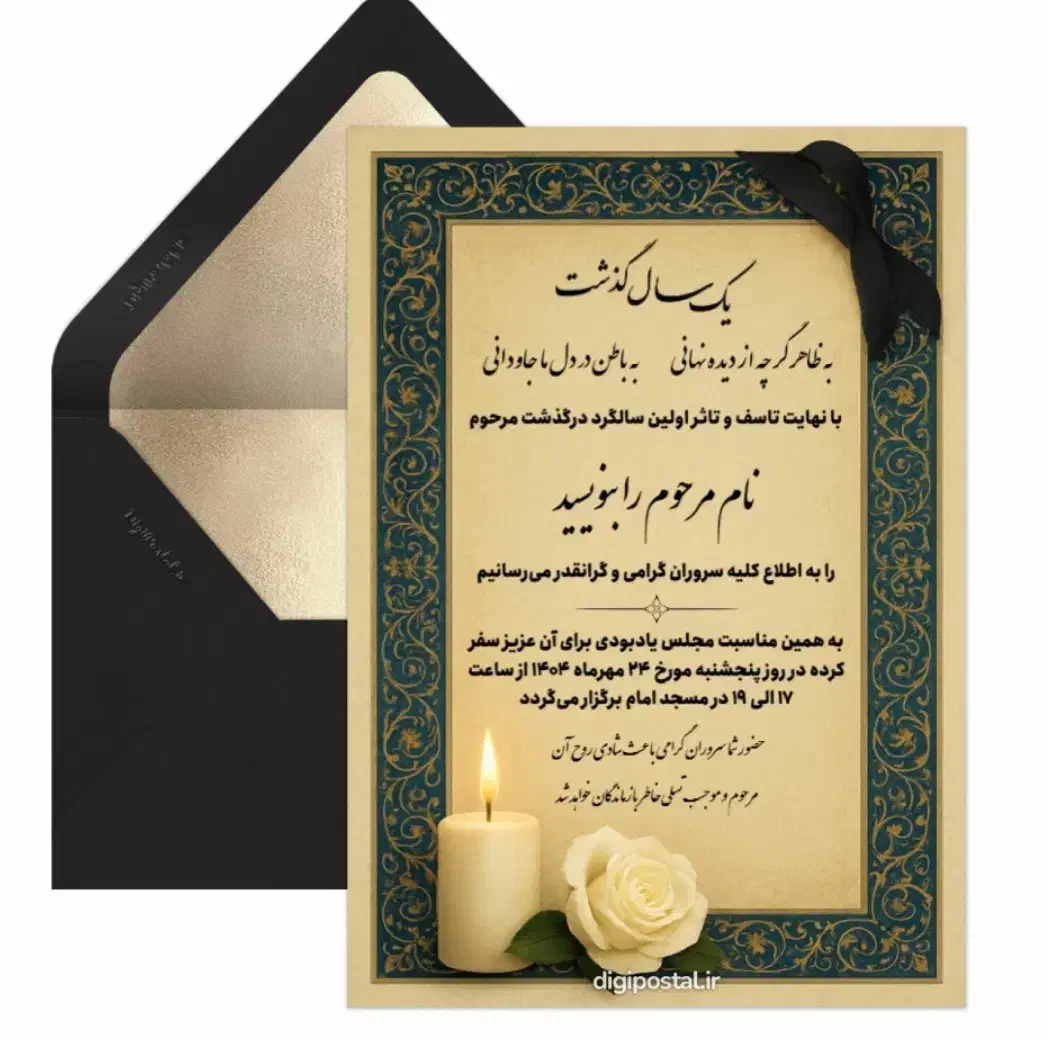 یک سال گذشت
به ظاهر گر چه از دیده نهانی به باطن در دل ما جاودانی
با نهایت تاسف و تاثر اولین سالگرد درگذشت مرحوم
نام مرحوم را بنویسید
را به اطلاع کلیه سروران گرامی و گرانقدر می‌رسانیم
به همین مناسبت مجلس یادبودی برای آن عزیز سفر
کرده در روز پنجشنبه مورخ ۲۴ مهرماه ۱۴۰۴ از ساعت
۱۷ الی ۱۹ در مسجد امام برگزار می‌گردد
حضور شما سروران گرامی باعث شادی روح آن
مرحوم و موجب تسلی خاطر بازماندگان خواهد شد
digipostal.ir
DigiPostal.ir
DigiPostal.ir